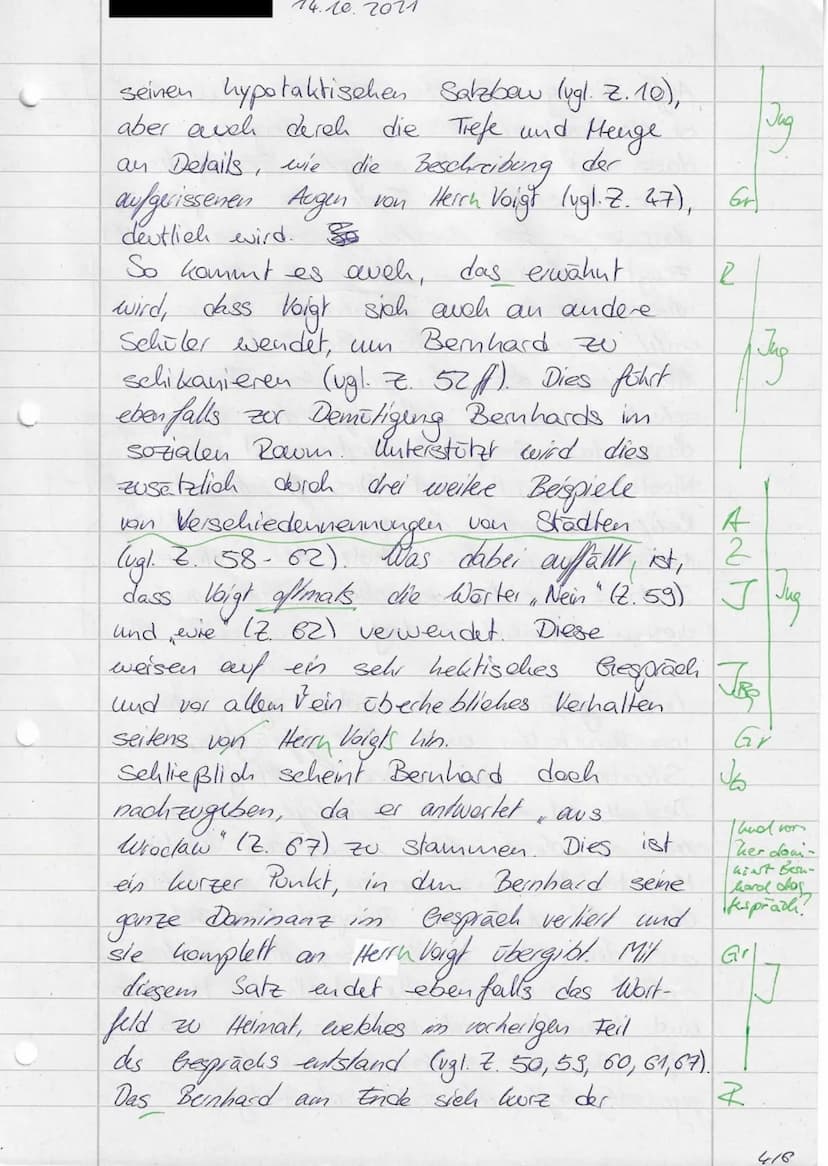 14.10.2021
seinen hypotaktischen Satzbau (vgl. Z. 10),
aber auch durch die Tiefe und Menge
an Details, wie die Beschreibung der
aufgerissenen Augen von Herrn Voigt (vgl. Z. 47),
Gr
deutlich wird.
So kommt es auch, das erwähnt
R
wird, dass Voigt sich auch an andere
Schüler wendet, um Bernhard zu
schikanieren (vgl. Z. 52ff). Dies führt
ebenfalls zur Demütigung Bernhards im
sozialen Raum. Unterstützt wird dies
zusätzlich durch drei weitere Beispiele
von Verschiedennennungen von Städten
A
(vgl. Z. 58-62). Was dabei auffällt, ist,
Z
dass Voigt oftmals die Wörter „Nein" (Z. 59)
J
und „wie" (Z. 62) verwendet. Diese
weisen auf ein sehr hektisches Gespräch
und vor allem ein überhebliches Verhalten
seitens von Herrn Voigts hin.
Gr
Schließlich scheint Bernhard doch
nachzugeben, da er antwortet „aus
Wroclaw" (Z. 67) zu stammen. Dies ist
ein kurzer Punkt, in dem Bernhard seine
ganze Dominanz im Gespräch verliert und
Und vor-
her domi-
niert Bern-
hard das
Gespräch?
sie komplett an Herrn Voigt übergibt. Mit
Gr
diesem Satz endet ebenfalls das Wort-
J
feld zu Heimat, welches im vorherigen Teil
des Gesprächs entstand (vgl. Z. 50, 59, 60, 61, 67).
Das Bernhard am Ende sich kurz der
R
4/8